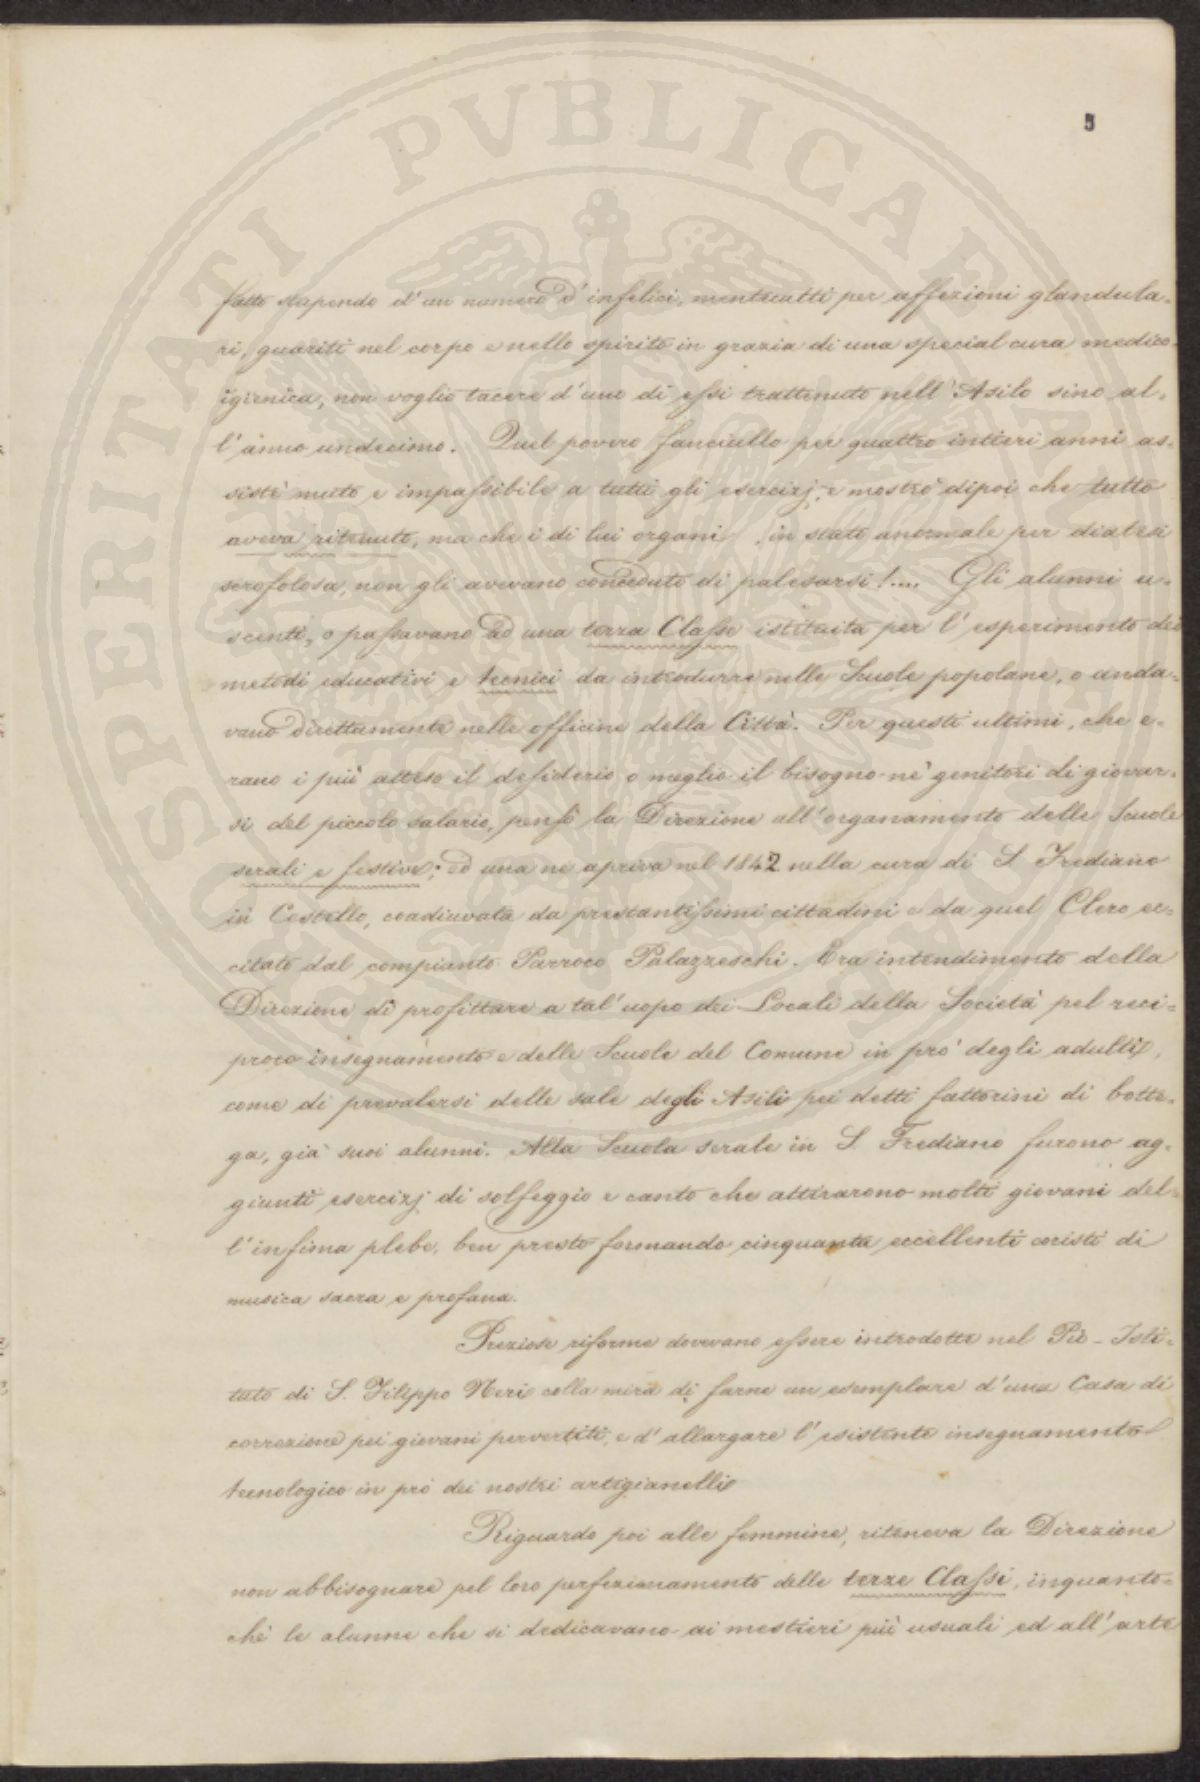 5
fatto stupendo d'un numero d'infelici, mentecatti per affezioni glandula-
ri, guariti nel corpo e nello spirito in grazia di una special cura medico-
igienica, non voglio tacere d'uno di essi trattenuto nell'Asilo sino al-
l'anno undecimo. Quel povero fanciullo per quattro intieri anni as-
sistè muto e impassibile a tutti gli esercizj, e mostrò dipoi che tutto
aveva ritenuto, ma che i di lui organi, in stato anormale per diatesi
scrofolosa, non gli avevano conceduto di palesarsi!.... Gli alunni u-
scenti, o passavano ad una terza Classe istituita per l'esperimento dei
metodi educativi e tecnici da introdurre nelle Scuole popolane, o anda-
vano direttamente nelle officine della Città. Per questi ultimi, che e-
rano i più atteso il desiderio o meglio il bisogno ne' genitori di giovar-
si del piccolo salario, pensò la Direzione all'organamento delle Scuole
serali e festive; ed una ne apriva nel 1842 nella cura di S. Frediano
in Cestello, coadiuvata da prestantissimi cittadini e da quel Clero ec-
citato dal compianto Parroco Palazzeschi. Era intendimento della
Direzione di profittare a tal'uopo dei Locali della Società pel reci-
proco insegnamento e delle Scuole del Comune in prò degli adulti,
come di prevalersi delle sale degli Asili pei detti fattorini di botte-
ga, già suoi alunni. Alla Scuola serale in S. Frediano furono ag-
giunti esercizj di solfeggio e canto che attirarono molti giovani del-
l'infima plebe, ben presto formando cinquanta eccellenti coristi di
musica sacra e profana.
Preziose riforme dovevano essere introdotte nel Pio-Isti-
tuto di S. Filippo Neri colla mira di farne un esemplare d'una Casa di
correzione pei giovani pervertiti, e d'allargare l'esistente insegnamento
tecnologico in prò dei nostri artigianelli
Riguardo poi alle femmine, riteneva la Direzione
non abbisognare pel loro perfezionamento delle terze Classi, inquanto-
chè le alunne che si dedicavano ai mestieri più usuali ed all'arte